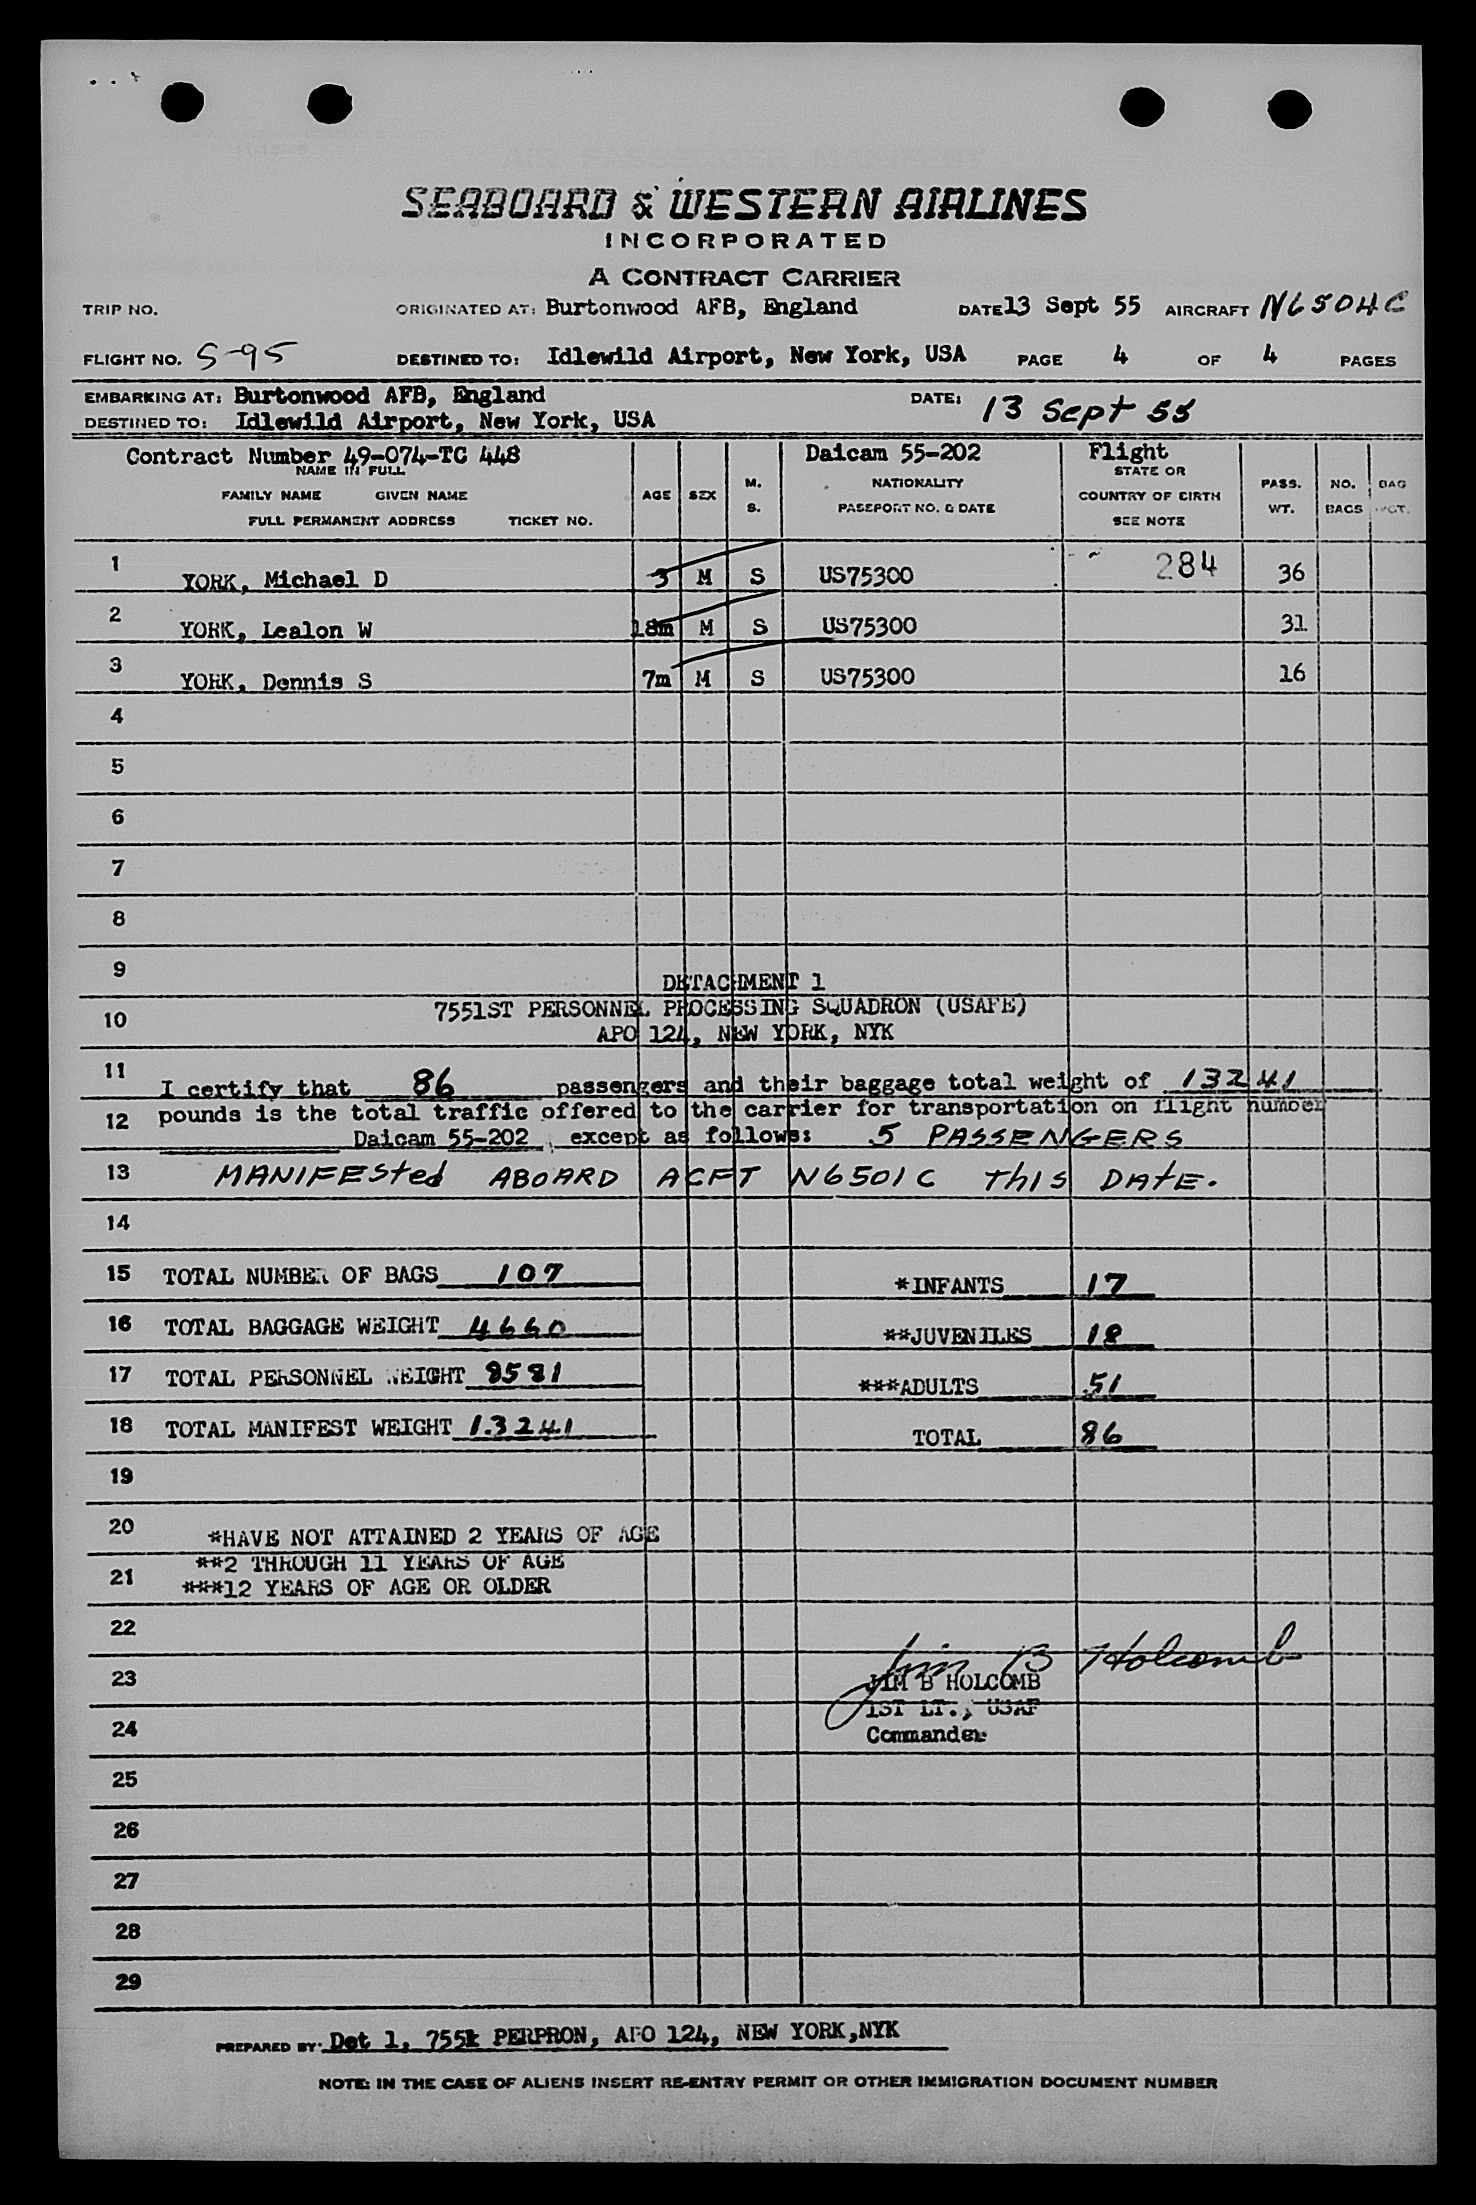 SEABOARD & WESTERN AIRLINES
INCORPORATED
A CONTRACT CARRIER
TRIP NO. ORIGINATED AT: Burtonwood AFB, England DATE 13 Sept 55 AIRCRAFT N6504C
FLIGHT NO. S-95 DESTINED TO: Idlewild Airport, New York, USA PAGE 4 OF 4 PAGES
EMBARKING AT: Burtonwood AFB, England DATE: 13 Sept 55
DESTINED TO: Idlewild Airport, New York, USA
Contract Number 49-074-TC 448 Daicam 55-202 Flight
NAME IN FULL STATE OR
FAMILY NAME GIVEN NAME AGE SEX M. S. NATIONALITY COUNTRY OF BIRTH PASS. WT. NO. BAGS BAG WGT.
FULL PERMANENT ADDRESS TICKET NO. PASSPORT NO. & DATE SEE NOTE
1 YORK, Michael D 3 M S US75300 284 36
2 YORK, Lealon W 18m M S US75300 31
3 YORK, Dennis S 7m M S US75300 16
4
5
6
7
8
9 DETACHMENT 1
10 7551ST PERSONNEL PROCESSING SQUADRON (USAFE)
APO 124, NEW YORK, NYK
11 I certify that 86 passengers and their baggage total weight of 13241
12 pounds is the total traffic offered to the carrier for transportation on flight number
Daicam 55-202 except as follows: 5 PASSENGERS
13 MANIFESTed ABOARD ACFT N6501C THIS DATE.
14
15 TOTAL NUMBER OF BAGS 107 *INFANTS 17
16 TOTAL BAGGAGE WEIGHT 4660 **JUVENILES 18
17 TOTAL PERSONNEL WEIGHT 8581 ***ADULTS 51
18 TOTAL MANIFEST WEIGHT 13241 TOTAL 86
19
20 *HAVE NOT ATTAINED 2 YEARS OF AGE
**2 THROUGH 11 YEARS OF AGE
21 ***12 YEARS OF AGE OR OLDER
22
Jim B Holcomb
23 JIM B HOLCOMB
1ST LT., USAF
24 Commander
25
26
27
28
29
PREPARED BY: Det 1, 755k PERPRON, APO 124, NEW YORK,NYK
NOTE: IN THE CASE OF ALIENS INSERT RE-ENTRY PERMIT OR OTHER IMMIGRATION DOCUMENT NUMBER